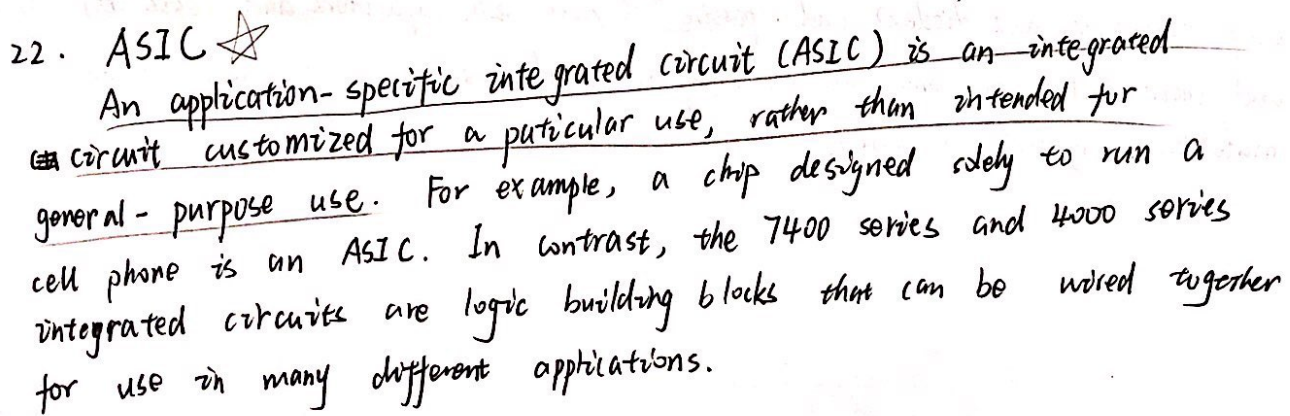 22. ASIC ☆
An application-specific integrated circuit (ASIC) is an integrated
circuit customized for a paticular use, rather than intended for
general-purpose use. For example, a chip designed solely to run a
cell phone is an ASIC. In contrast, the 7400 series and 4000 series
integrated circuits are logic building blocks that can be wired together
for use in many different applications.